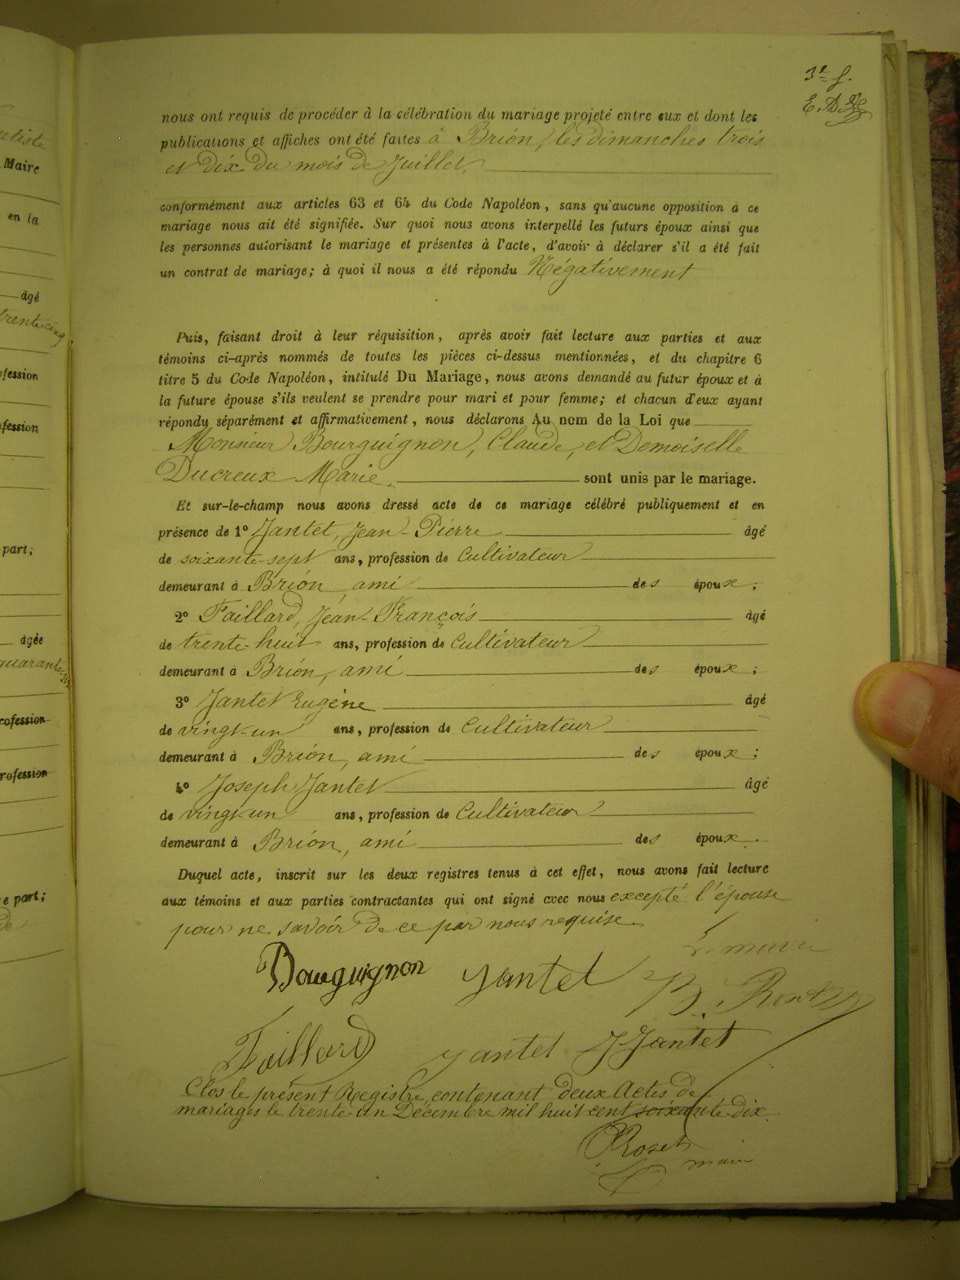 3e f.
nous ont requis de procéder à la célébration du mariage projeté entre eux et dont les
publications et affiches ont été faites à Brion, les dimanches trois
et dix du mois de Juillet,
conformément aux articles 63 et 64 du Code Napoléon, sans qu'aucune opposition à ce
mariage nous ait été signifiée. Sur quoi nous avons interpellé les futurs époux ainsi que
les personnes autorisant le mariage et présentes à l'acte, d'avoir à déclarer s'il a été fait
un contrat de mariage; à quoi il nous a été répondu Négativement
Puis, faisant droit à leur réquisition, après avoir fait lecture aux parties et aux
témoins ci-après nommés de toutes les pièces ci-dessus mentionnées, et du chapitre 6
titre 5 du Code Napoléon, intitulé Du Mariage, nous avons demandé au futur époux et à
la future épouse s'ils veulent se prendre pour mari et pour femme; et chacun d'eux ayant
répondu séparément et affirmativement, nous déclarons Au nom de la Loi que
Monsieur Bourguignon, Claude, et Demoiselle
Ducreux Marie, sont unis par le mariage.
Et sur-le-champ nous avons dressé acte de ce mariage célébré publiquement et en
présence de 1º Jantet, Jean-Pierre âgé
de soixante-sept ans, profession de Cultivateur
demeurant à Brion, ami des époux;
2º Faillard, Jean-François âgé
de trente-huit ans, profession de Cultivateur
demeurant à Brion, ami des époux;
3º Jantet Eugène âgé
de vingt-un ans, profession de Cultivateur
demeurant à Brion, ami des époux;
4º Joseph Jantet âgé
de vingt-un ans, profession de Cultivateur
demeurant à Brion, ami des époux.
Duquel acte, inscrit sur les deux registres tenus à cet effet, nous avons fait lecture
aux témoins et aux parties contractantes qui ont signé avec nous excepté l'épouse
pour ne savoir de ce par nous requise
Bourguignon Jantet
Faillard Jantet J Jantet
Clos le présent Registre, contenant deux Actes de
mariages le trente-un Décembre mil huit cent soixante-dix
Roset
maire
Maire
en la
âgé
trente-cinq
fession
fession
part;
âgée
quarante
rofession
rofession
e part;